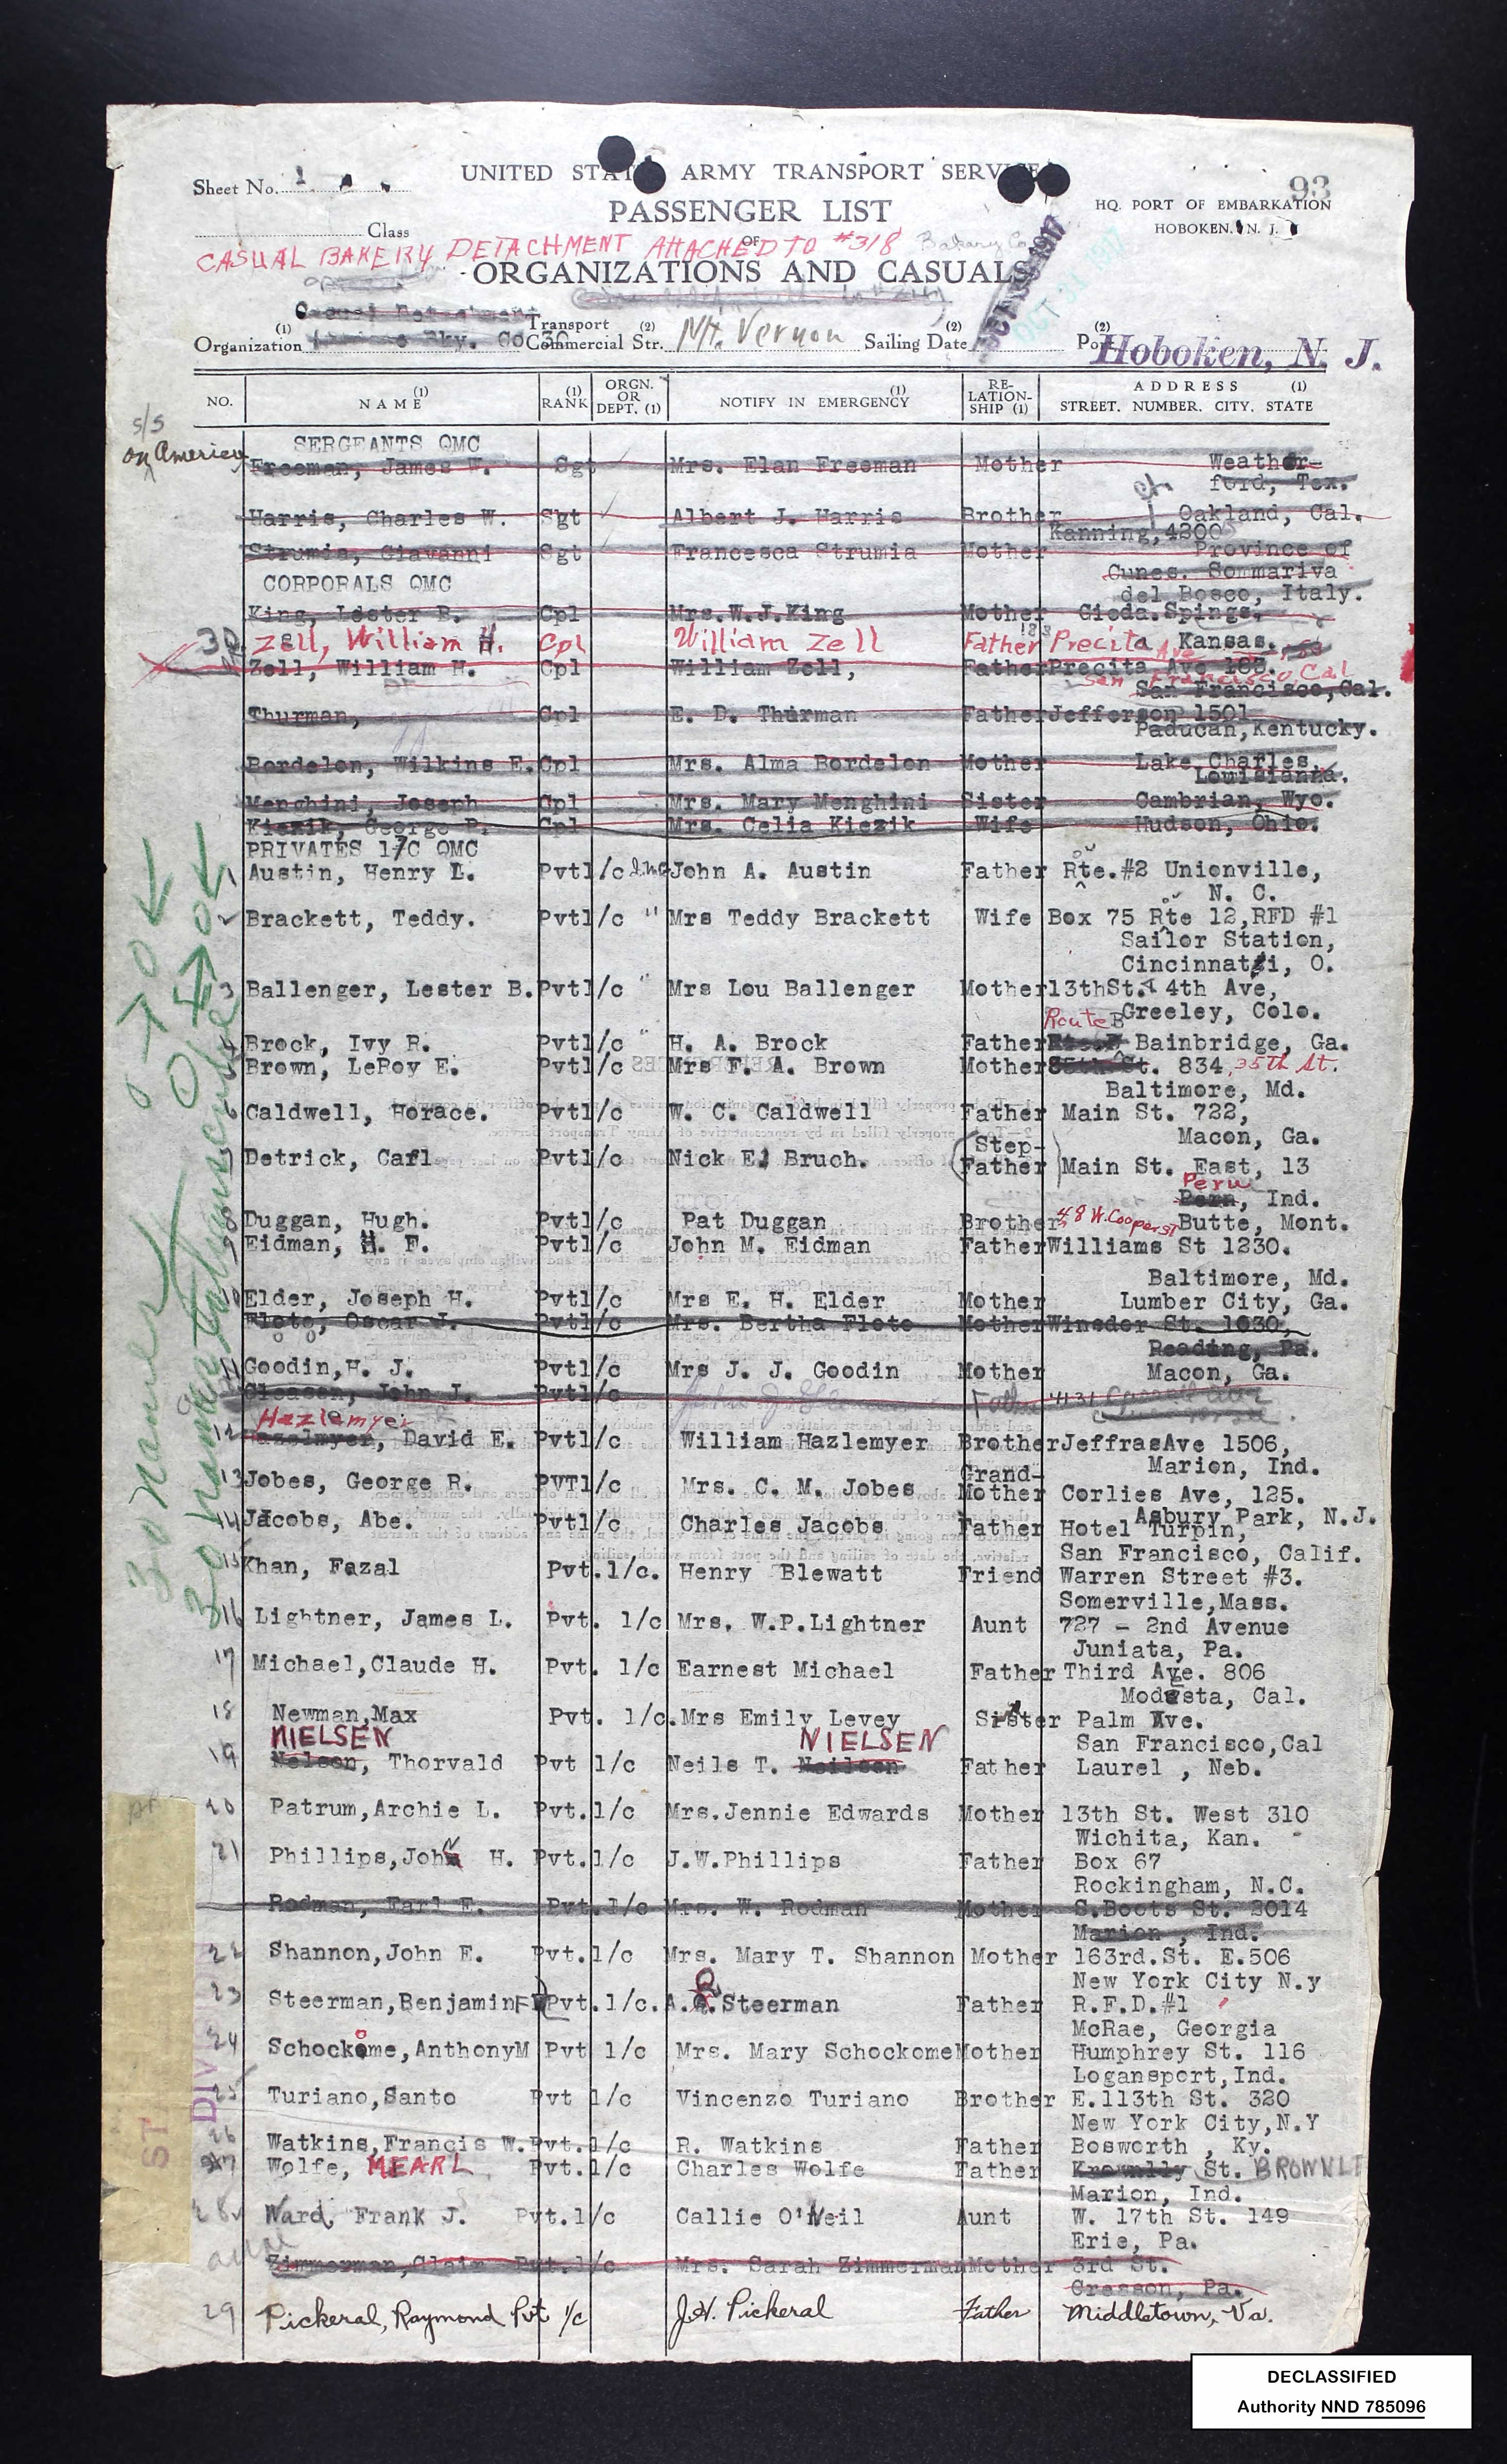 93
Sheet No. 1
UNITED STATES ARMY TRANSPORT SERVICE
PASSENGER LIST
OF
ORGANIZATIONS AND CASUALS
HQ. PORT OF EMBARKATION
HOBOKEN, N. J.
Class
CASUAL BAKERY DETACHMENT ATTACHED TO #318 Bakery Co
OCT 31 1917
(1) Organization Bky. Co
Transport (2)
Commercial Str. Mt. Vernon
Sailing Date (2)
Port (2) Hoboken, N. J.
NO. NAME (1) RANK (1) ORGN. OR DEPT. (1) NOTIFY IN EMERGENCY (1) RELATIONSHIP (1) ADDRESS (1) STREET. NUMBER. CITY. STATE
SERGEANTS QMC
S/S on America
Freeman, James W. Sgt Mrs. Elan Freeman Mother Weather-
ford, Tex.
Harris, Charles W. Sgt Albert J. Harris Brother Oakland, Cal.
Kanning, 4200
Strumia, Giavanni Sgt Francesca Strumia Mother Province of
Cunes. Sommariva
del Bosco, Italy.
CORPORALS QMC
King, Lester E. Cpl Mrs. W.J.King Mother Gioda.Spings,
Kansas.
30 Zell, William H. Cpl William Zell Father Precita Ave
San Francisco, Cal
Zell, William H. Cpl William Zell, Father Precita Ave 168.
San Francisco,Cal.
Thurman, Cpl E. D. Thurman Father Jefferson 1501
Paducah,Kentucky.
Bordelon, Wilkins E. Cpl Mrs. Alma Bordelon Mother Lake Charles,
Louisianna.
Menghini, Joseph Cpl Mrs. Mary Menghini Sister Cambrian, Wyo.
Kiezik, George P. Cpl Mrs. Celia Kiezik Wife Hudson, Ohio.
PRIVATES 1/C QMC
1 Austin, Henry L. Pvt1/c John A. Austin Father Rte.#2 Unionville,
N. C.
2 Brackett, Teddy. Pvt1/c " Mrs Teddy Brackett Wife Box 75 Rte 12,RFD #1
Sailor Station,
Cincinnati, O.
3 Ballenger, Lester B. Pvt1/c " Mrs Lou Ballenger Mother 13thSt.& 4th Ave,
Greeley, Colo.
4 Brock, Ivy R. Pvt1/c " H. A. Brock Father Route B Bainbridge, Ga.
5 Brown, LeRoy E. Pvt1/c Mrs F. A. Brown Mother 35th St. 834, 35th St.
Baltimore, Md.
6 Caldwell, Horace. Pvt1/c W. C. Caldwell Father Main St. 722,
Macon, Ga.
7 Detrick, Carl Pvt1/c Nick E. Bruch. (Step-Father) Main St. East, 13
Peru, Ind.
8 Duggan, Hugh. Pvt1/c Pat Duggan Brother 48 W. Cooper St Butte, Mont.
9 Eidman, H. F. Pvt1/c John M. Eidman Father Williams St 1230.
Baltimore, Md.
10 Elder, Joseph H. Pvt1/c Mrs E. H. Elder Mother Lumber City, Ga.
Floto, Oscar J. Pvt1/c Mrs. Bertha Floto Mother Winsdor St. 1030,
Reading, Pa.
11 Goodin,H. J. Pvt1/c Mrs J. J. Goodin Mother Macon, Ga.
Gleason, John J. Pvt1/c Father 4131
Hazlemyer
12 Hazelmyer, David E. Pvt1/c William Hazlemyer Brother JeffrasAve 1506,
Marion, Ind.
13 Jobes, George R. PVT1/c Mrs. C. M. Jobes Grand-Mother Corlies Ave, 125.
Asbury Park, N.J.
14 Jacobs, Abe. Pvt1/c Charles Jacobs Father Hotel Turpin,
San Francisco, Calif.
15 Khan, Fazal Pvt.1/c. Henry Blewatt Friend Warren Street #3.
Somerville,Mass.
16 Lightner, James L. Pvt. 1/c Mrs. W.P.Lightner Aunt 727 - 2nd Avenue
Juniata, Pa.
17 Michael,Claude H. Pvt. 1/c Earnest Michael Father Third Ave. 806
Modesta, Cal.
18 Newman,Max Pvt. 1/c. Mrs Emily Levey Sister Palm Ave.
San Francisco,Cal
NIELSEN NIELSEN
19 Nelson, Thorvald Pvt 1/c Neils T. Neilson Father Laurel , Neb.
20 Patrum,Archie L. Pvt.1/c Mrs.Jennie Edwards Mother 13th St. West 310
Wichita, Kan.
21 Phillips,John H. Pvt.1/c J.W.Phillips Father Box 67
Rockingham, N.C.
Rodman, Earl E. Pvt.1/c Mrs. W. Rodman Mother S.Boots St. 2014
Marion , Ind.
22 Shannon,John E. Pvt.1/c Mrs. Mary T. Shannon Mother 163rd.St. E.506
New York City N.y
23 Steerman,Benjamin F Pvt.1/c. A.R.Steerman Father R.F.D.#1
McRae, Georgia
24 Schockome,AnthonyM Pvt 1/c Mrs. Mary Schockome Mother Humphrey St. 116
Logansport,Ind.
25 Turiano,Santo Pvt 1/c Vincenzo Turiano Brother E.113th St. 320
New York City,N.Y
26 Watkins,Francis W. Pvt.1/c R. Watkins Father Bosworth , Ky.
27 Wolfe, MEARL Pvt.1/c Charles Wolfe Father St. BROWNLE
Marion, Ind.
28 Ward, Frank J. Pvt.1/c Callie O'Neil Aunt W. 17th St. 149
Erie, Pa.
Zimmerman,Clair Pvt.1/c Mrs. Sarah Zimmerman Mother 3rd St.
Cresson, Pa.
29 Pickeral, Raymond Pvt 1/c J.H. Pickeral Father Middletown, Va.
DECLASSIFIED
Authority NND 785096